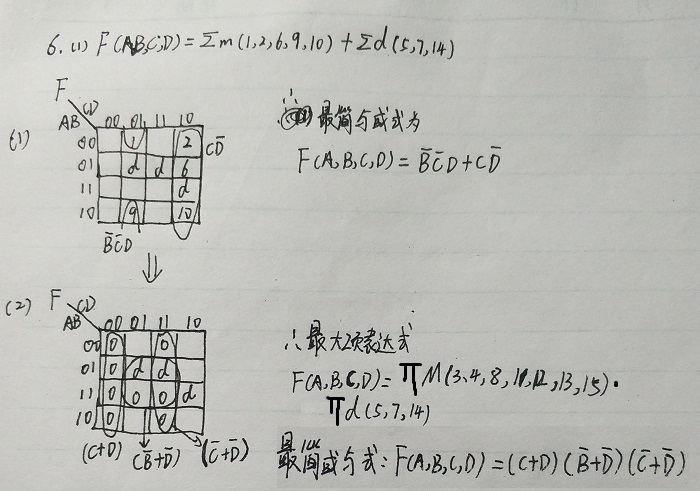 6. (1) F(A,B,C,D) = Σm(1,2,6,9,10) + Σd(5,7,14)
(1)
F
AB CD
00 01 11 10
00 1 2
01 d d 6
11 d
10 9 10
B̄C̄D CD̄
∴ 最简与或式为
F(A,B,C,D) = B̄C̄D + CD̄
⇓
(2)
F
AB CD
00 01 11 10
00 0 0
01 0 d d
11 0 0 0 d
10 0 0
(C+D) (B̄+D̄) (C̄+D̄)
∴ 最大项表达式
F(A,B,C,D) = ΠM(3,4,8,11,12,13,15)·
Πd(5,7,14)
最简或与式: F(A,B,C,D) = (C+D)(B̄+D̄)(C̄+D̄)